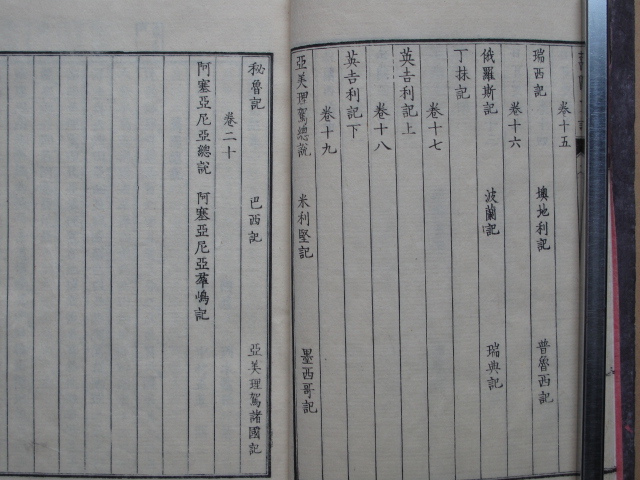 卷十五
瑞西記 墺地利記 普魯西記
卷十六
俄羅斯記 波蘭記 瑞典記
丁抹記
卷十七
英吉利記上
卷十八
英吉利記下
卷十九
亞美理駕總說 米利堅記 墨西哥記
秘魯記 巴西記 亞美理駕諸國記
卷二十
阿塞亞尼亞總說 阿塞亞尼亞羣嶋記